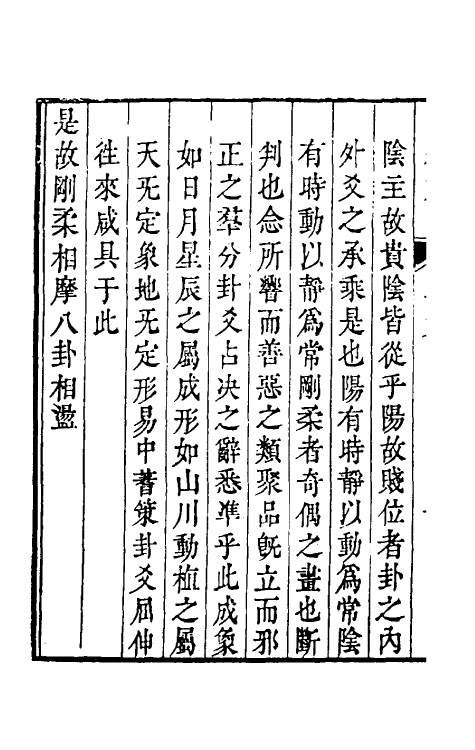 陰主故貴陰皆從乎陽故賤位者卦之內
外爻之承乘是也陽有時靜以動爲常陰
有時動以靜爲常剛柔者奇偶之畫也斷
判也念所嚮而善惡之類聚品旣立而邪
正之羣分卦爻占決之辭悉準乎此成象
如日月星辰之屬成形如山川動植之屬
天旡定象地旡定形易中蓍策卦爻屈伸
徃來咸具于此
是故剛柔相摩八卦相盪